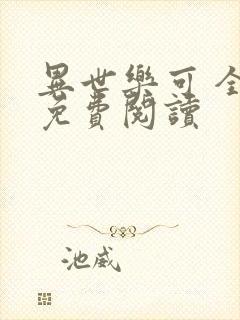 異世樂可 全
免費閱讀
池威